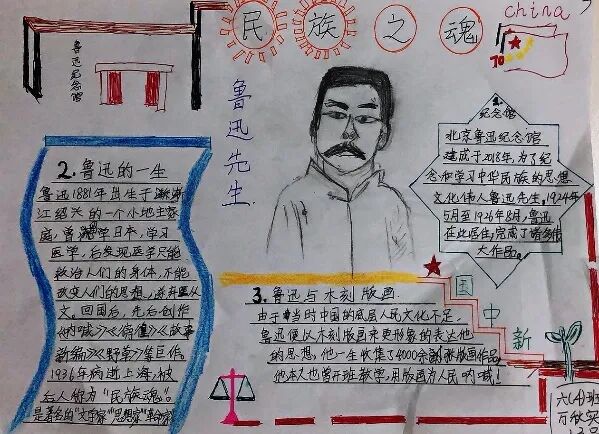 民族之魂
china
70
鲁迅纪念馆
鲁迅先生
1.
纪念馆
北京鲁迅纪念馆
建成于2018年,为了纪
念和学习中华民族的思想
文化伟人鲁迅先生,1924年
5月至1926年8月,鲁迅
在此居住,完成了诸多伟
大作品。
2.鲁迅的一生
鲁迅1881年出生于浙
江绍兴的一个小地主家
庭,曾留学日本,学习
医学,后发现医学只能
救治人们的身体,不能
改变人们的思想,遂弃医从
文。回国后,先后创作
《呐喊》《彷徨》《故事
新编》《野草》等巨作。
1936年病逝上海,被
后人称为“民族魂”。
是著名的“文学家”“思想家”“革命家”
3.鲁迅与木刻版画
由于当时中国的底层人民文化不足,
鲁迅便以木刻版画来更形象的表达他
的思想,他一生收集了4000多张版画作品
他本人也曾开班教学,用版画为人民呐喊!
国
中
新
六(4)班